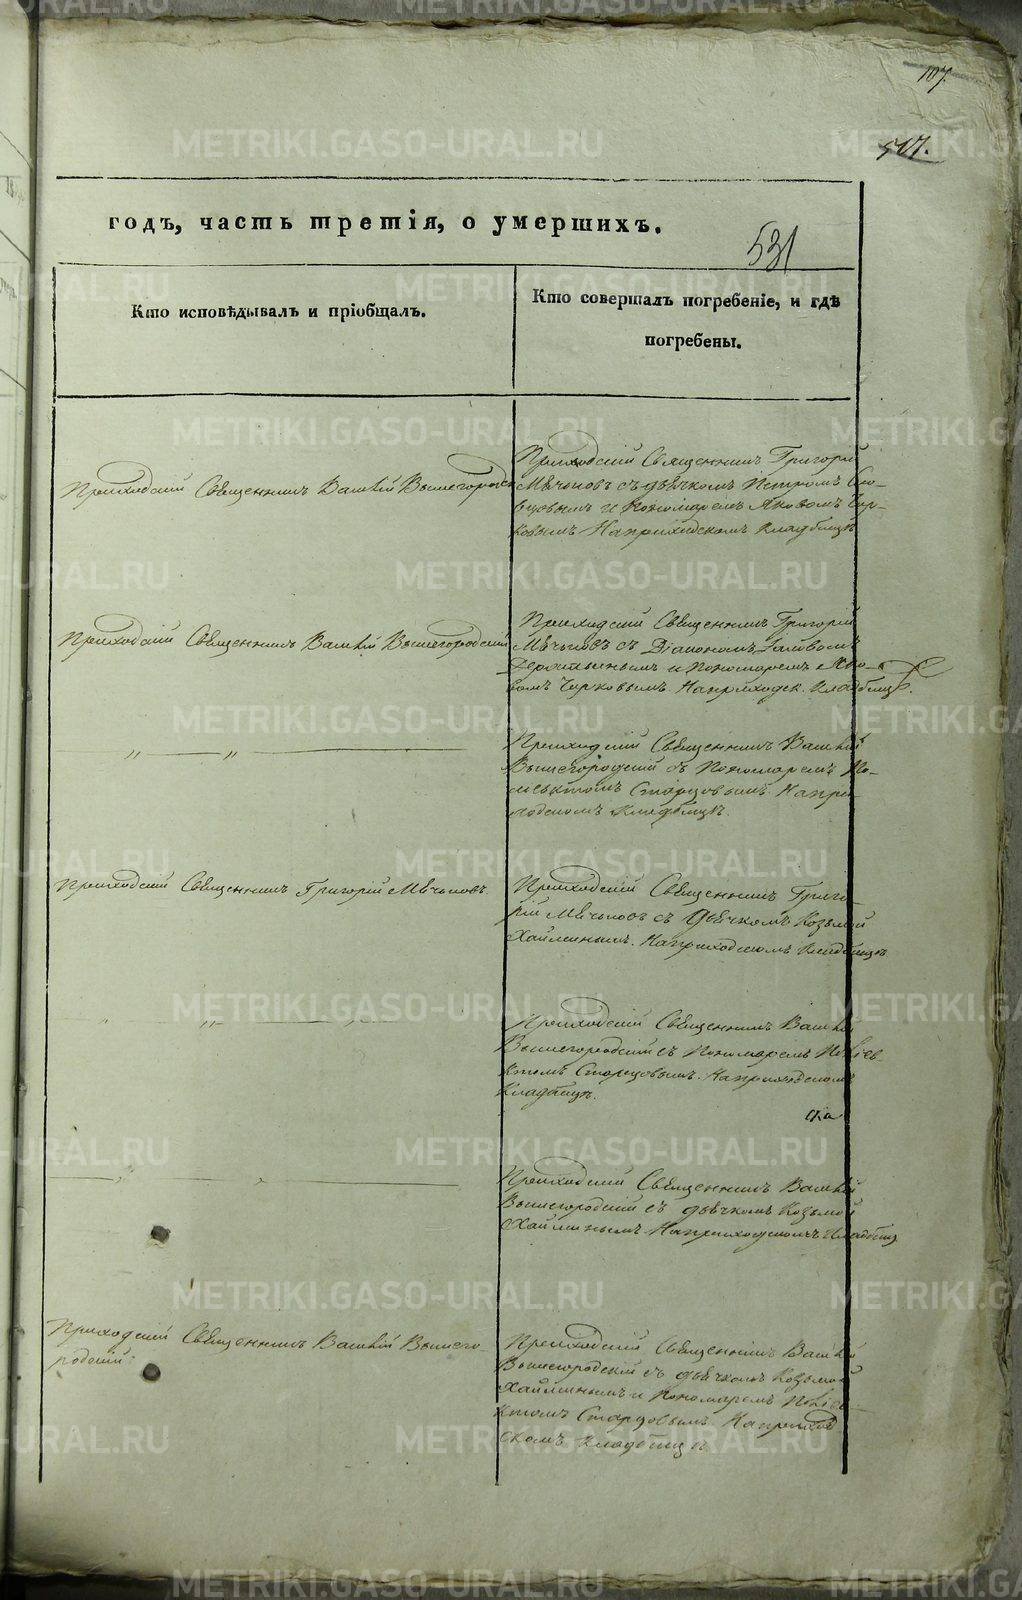 107.
507.
годъ, часть третія, о умершихъ.
531
Кто исповѣдывалъ и пріобщалъ.
Кто совершалъ погребеніе, и гдѣ
погребены.
Приходскій Священникъ Василій Вышегородск
Приходскій Священникъ Григорій
Мѣчоновъ съ дьячкомъ Петромъ
и Пономаремъ Яковомъ Чир-
ковымъ На приходскомъ кладбищѣ
Приходскій Священникъ Василій Вышегородскій
Приходскій Священникъ Григорій
Мѣчоновъ съ Діакономъ Іаковомъ
и Пономаремъ Яко-
вомъ Чирковымъ На приходск. кладбищѣ.
„ „
Приходскій Священникъ Василій
Вышегородскій съ Пономаремъ По-
Старцовымъ. На при-
ходскомъ кладбищѣ.
Приходскій Священникъ Григорій Мѣчоновъ.
Приходскій Священникъ Григо-
рій Мѣчоновъ съ Дьячкомъ Козьмой
Хайминымъ. На приходскомъ кладбищѣ
„ „ „
Приходскій Священникъ Василій
Вышегородскій съ Пономаремъ
Старцовымъ. На приходскомъ
Кладбищѣ.
„ „
Приходскій Священникъ Василій
Вышегородскій съ дьячкомъ Козьмой
Хайминымъ На приходскомъ кладбищѣ
Приходскій Священникъ Василій Вышего-
родскій.
Приходскій Священникъ Василій
Вышегородскій съ дьячкомъ Козьмой
Хайминымъ и Пономаремъ
Старцовымъ. На приход
скомъ кладбищѣ
METRIKI.GASO-URAL.RU